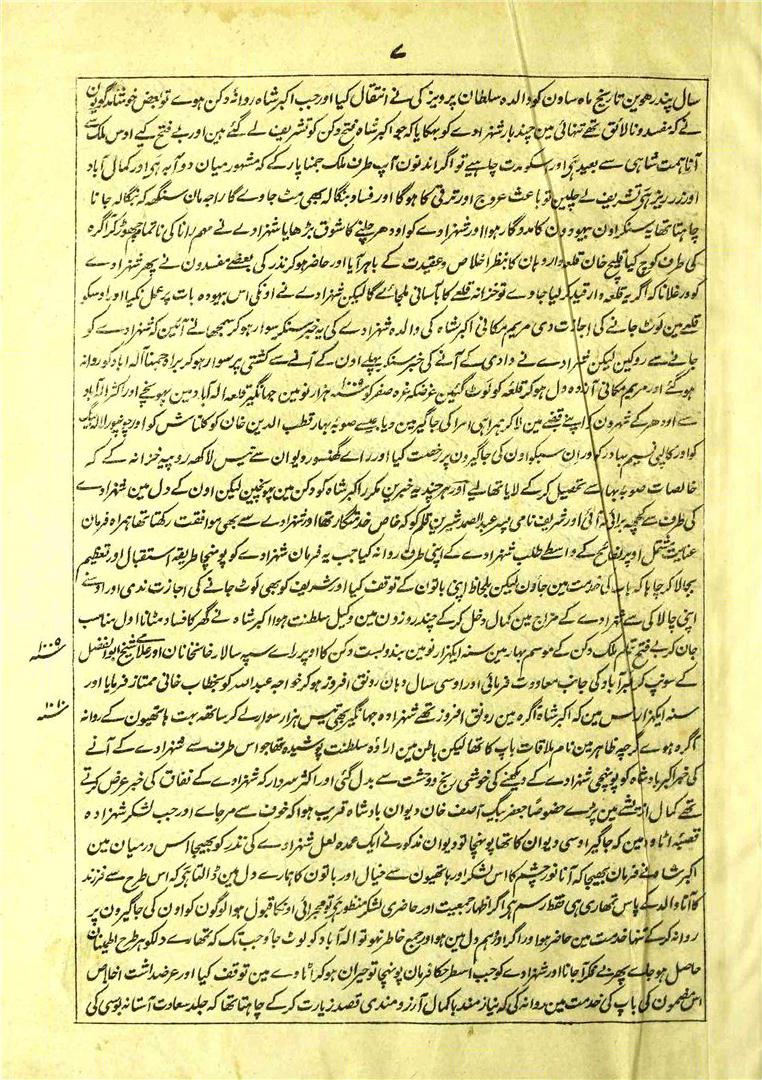 ۷
سال پندرھوین تاریخ ماہ ساون کو والدہ سلطان پرویز کی نے انتقال کیا اور جب اکبر شاہ روانہ دکن ہوے تو بعض خوشامدگویون
نے کہ مفسد و نالائق تھے تنہائی مین چند بار شہزادے کو بہکایا کہ جو اکبر شاہ فتح دکن کو تشریف لے گئے ہین اور بے فتح کیے اوس ملک سے
آنا ہمت شاہی سے بعید ہی اور سکو مدت چاہیے تو اگر اندنون آپ طرف ملک جمنا پار کے کہ مشہور میان دوآبہ ہی اور کمال آباد
اور زر ریز ہی تشریف لے چلین تو باعث عروج اور ترقی کا ہوگا اور فساد بنگالہ بھی مٹ جاوے گا راجہ مان سنگھ کہ بنگالہ جانا
چاہتا تھا یہ سنکر اون بیہودون کا مددگار ہوا اور شہزادے کو اودھر چلنے کا شوق بڑھایا شہزادے نے مہم رانا کی ناتمام چھوڑ کر آگرہ
کی طرف کوچ کیا قلیچ خان قلعہ دار وہان کا بنظر اخلاص و عقیدت کے باہر آیا اور حاضر ہو کر نذر کی بعضے مفسدون نے پھر شہزادے
کو ورغلانا کہ اگر یہ قلعہ دار قید کر لیا جاوے تو خزانہ قلعے کا بآسانی ملجائے گا لیکن شہزادے نے اونکی اس بیہودہ بات پر عمل نکیا اور اوسکو
قلعے مین لوٹ جانے کی اجازت دی مریم مکانی اکبر شاہ کی والدہ شہزادے کی یہ خبر سنکر سوار ہو کر سمجھانے آئین کہ شہزادے کو
جانے سے روکین لیکن شہزادے نے دادی کے آنے کی خبر سنکر پہلے اون کے آنے سے کشتی پر سوار ہو کر براہ جمنا الہ آباد کو روانہ
ہو گئے اور مریم مکانی آزردہ دل ہو کر قلعہ کو لوٹ گئین غرضکہ غرہ صفر کو ۱۰۰۹ سنہ ہزار نو مین جہانگیر قلعہ الہ آباد مین پہونچے اور اکثر آباد
سے اودھر کے شہرون کو اپنے قبضے مین لاکر ہمراہی امرا کی جاگیر مین دیا جیسے صوبہ بہار قطب الدین خان کو کلتاش کو اور جونپور لالہ بیگ
کو اور کالپی نسیم بہادر کو اور ان سبکو اون کی جاگیرون پر رخصت کیا اور راے گھنسور دیوان سے تیس لاکھہ روپیہ خزانہ کے کہ
خالصات صوبہ بہار سے تحصیل کر کے لایا تھا لیے اور ہر چند یہ خبرین مکرر اکبر شاہ کو دکن مین پہونچین لیکن اون کے دل مین شہزادے
کی طرف سے کچھہ برائی نہ آئی اور شریف نامی پسر عبدالصمد شیرین قلم کو کہ خاص خدمتگار تھا اور شہزادے سے بھی موافقت رکھتا تھا ہمراہ فرمان
عنایت مشتمل اوپر نصائح کے واسطے طلب شہزادے کے اپنی طرف روانہ کیا جب یہ فرمان شہزادے کو پونہچا طریقہ استقبال اور تعظیم
بجا لا کر چاہا کہ باپ کی خدمت مین جاؤن لیکن بلحاظ اپنی باتون کے توقف کیا اور شریف کو بھی لوٹ جانے کی اجازت ندی اور اوسنے
اپنی چالاکی سے شہزادے کے مزاج مین کمال دخل کر کے چند روزون مین وکیل سلطنت ہوا اکبر شاہ نے گھر کا فساد مٹانا اول مناسب
جان کر بے فتح تمام ملک دکن کے موسم بہار مین سنہ ایکہزار نو مین بندوبست دکن کا اوپر راے سپہ سالار خانخانان اور علامی شیخ ابوالفضل
۱۰۰۹ سنہ
کے سونپ کر اکبرآباد کی جانب معاودت فرمائی اور اوسی سال وہان رونق افروز ہو کر خواجہ عبداللہ کو بخطاب خانی ممتاز فرمایا اور
۱۰۱۰ سنہ
سنہ ایکہزار دس مین کہ اکبر شاہ آگرہ مین رونق افروز تھے شہزادہ جہانگیر بھی تیس ہزار سوار لے کر ساتھہ بہت ہاتھیون کے روانہ
آگرہ ہوے گرچہ ظاہر مین نام ملاقات باپ کا تھا لیکن باطن مین ارادہ سلطنت پوشیدہ تھا جو اس طرف سے شہزادے کے آنے
کی خبر اکبر بادشاہ کو پونہچی شہزادے کے دیکھنے کی خوشی رنج و وحشت سے بدل گئی اور اکثر سردار کہ شہزادے کے نفاق کی خبر عرض کرتے
تھے کمال اندیشے مین پڑے خصوصًا جعفر بیگ آصف خان دیوان بادشاہ قریب ہوا کہ خوف سے مر جاے اور جب لشکر شہزادہ
قصبۂ اٹاوہ مین کہ جاگیر اوسی دیوان کا تھا پونہچا تو دیوان مذکور نے ایک عمدہ لعل شہزادے کی نذر کو بھیجا اس درمیان مین
اکبر شاہ نے فرمان بھیجا کہ آنا نور چشم کا اس لشکر اور ہاتھیون سے خیال اور باتون کا ہمارے دل مین ڈالتا ہی کہ اس طرح سے فرزند
کا آنا والد کے پاس تمھاری ہی فقط رسم ہی اگر اظہار جمعیت اور حاضری لشکر منظور ہی تو مجرائی اونکا قبول ہوا لوگون کو اون کی جاگیرون پر
روانہ کر کے تنہا خدمت مین حاضر ہو اور اگر وہم دل مین ہو اور جمع خاطر نہو تو الہ آباد کو لوٹ جاؤ جب تک کہ تمھارے دلکو ہر طرح اطمینان
حاصل ہو جاے پھر بے فکر آجانا اور شہزادے کو جب اسطرحکا فرمان پونہچا تو حیران ہو کر اٹاوے مین توقف کیا اور عرضداشت اخلاص
اس مضمون کی باپ کی خدمت مین روانہ کی کہ نیازمند باکمال آرزومندی قصد زیارت کر کے چاہتا تھا کہ جلد سعادت آستانہ بوسی کی